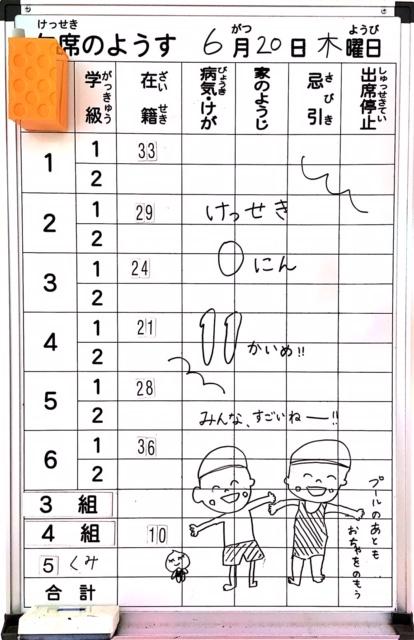 けっせき がつ ようび
席のようす 6月20日 木曜日
学級 がっきゅう 在籍 ざいせき 病気けが びょうき 家のようじ 忌引 きびき 出席停止 しゅっせきてい
1 1 33
2
2 1 29 けっせき
2
0にん
3 1 24
2
4 1 21
11かいめ!!
2
5 1 28
2 みんな、すごいねー!!
6 1 36
2
3組
4組 10
5くみ
合計
プールのあとも
おちゃをのもう